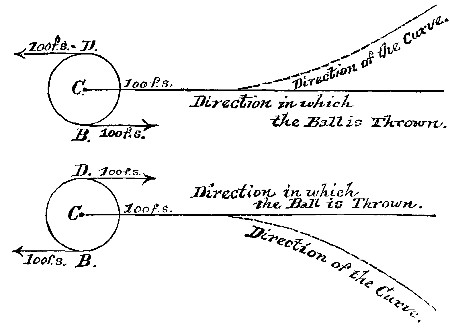 100f.s. D.
C. 100f.s.
B. 100f.s.
Direction of the Curve.
Direction in which
the Ball is Thrown.
D. 100f.s.
C. 100f.s.
100f.s. B.
Direction in which
the Ball is Thrown.
Direction of the Curve.